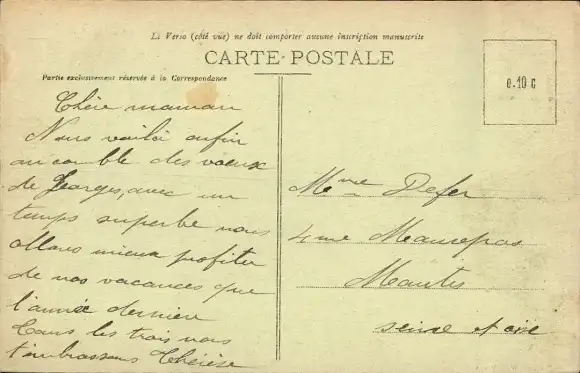 Le Verso (côté vue) ne doit comporter aucune inscription manuscrite
CARTE-POSTALE
Partie exclusivement réservée à la Correspondance
0.10 c
Chère maman
Nous voilà enfin
au comble des voeux
de Georges, avec un
temps superbe nous
allons mieux profiter
de nos vacances que
l'année dernière
Tous les trois nous
t'embrassons Thérèse
Mme Defer
4 rue Maurepas
Mantes
seine et oise